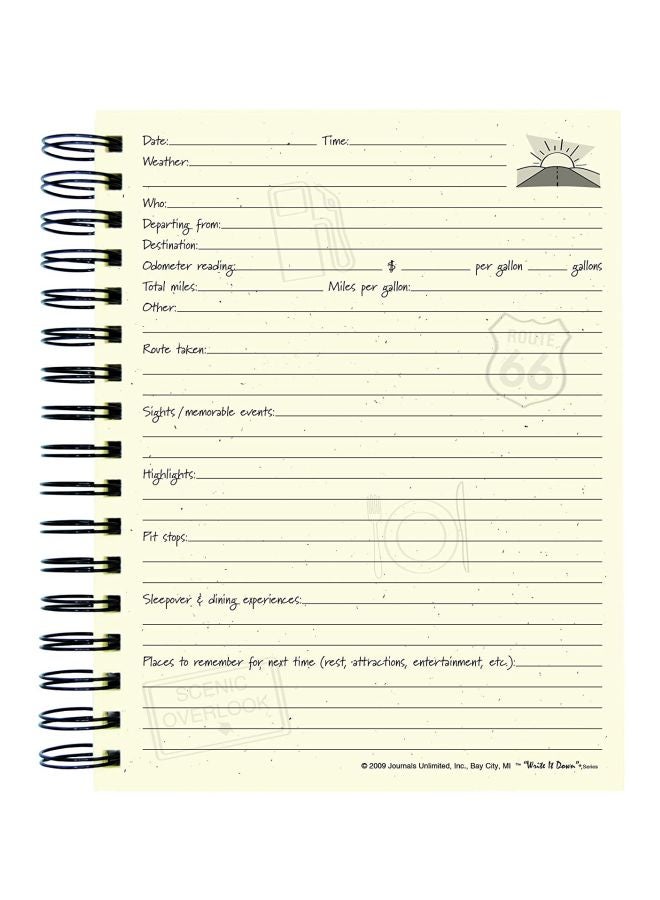 Date: Time:
Weather:
Who:
Departing from:
Destination:
Odometer reading: $ per gallon gallons
Total miles: Miles per gallon:
Other:
ROUTE
66
Route taken:
Sights / memorable events:
Highlights:
Pit stops:
Sleepover & dining experiences:
Places to remember for next time (rest, attractions, entertainment, etc.):
SCENIC
OVERLOOK
© 2009 Journals Unlimited, Inc., Bay City, MI ™ "Write It Down"® Series